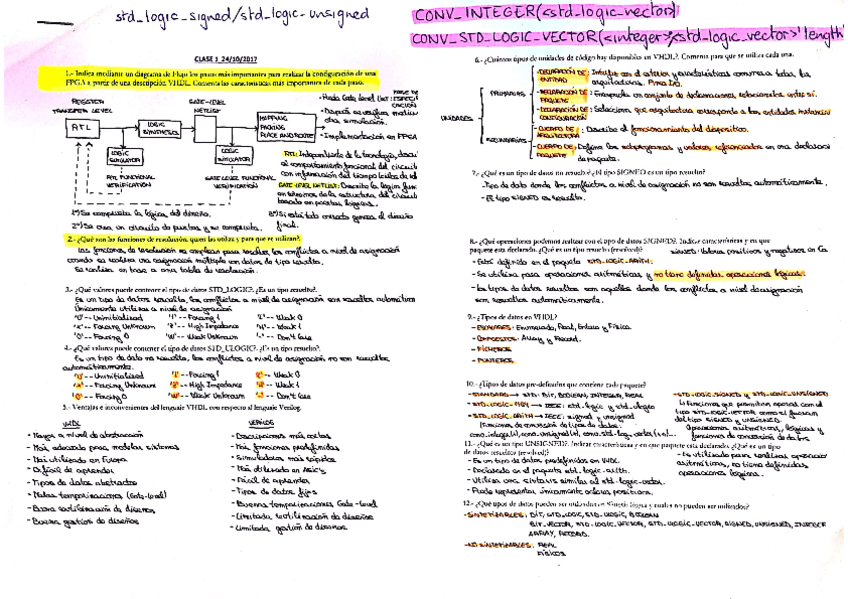 std_logic_signed/std_logic-unsigned
CONV_INTEGER(<std_logic_vector>)
CONV_STD_LOGIC_VECTOR(<integer>,<std_logic_vector>'length
CLASE 1_24/10/2017
1.- Indica mediante un diagrama de Flujo los pasos más importantes para realizar la configuración de una
FPGA a partir de una descripción VHDL. Comenta las características más importantes de cada paso.
REGISTER
TRANSFER LEVEL
GATE-LEVEL
NETLIST
RTL
LOGIC
SYNTHESIS
MAPPING
PACKING
PLACE AND ROUTE
LOGIC
SIMULATOR
LOGIC
SIMULATOR
RTL FUNCTIONAL
VERIFICATION
GATE LEVEL FUNCTIONAL
VERIFICATION
- Implementación en FPGA
RTL: Independiente de la tecnología,
el comportamiento funcional del
GATE LEVEL NETLIST: Describe la
en términos de la estructura del
basado en puertas lógicas.
1º) Se comprueba la lógica del diseño.
2º) Se crea un circuito de puertas y se comprueba.
3º) Si está todo correcto genera el circuito
final.
2.- ¿Qué son las funciones de resolución, quien las utiliza y para que se utilizan?.
Las funciones de resolución se emplean para resolver los conflictos a nivel de asignación
cuando se realiza una asignación múltiple con datos de tipo resuelto.
Se realiza en base a una tabla de resolución.
3.- ¿Qué valores puede contener el tipo de datos STD_LOGIC?. ¿Es un tipo resuelto?.
Es un tipo de datos resuelto, los conflictos a nivel de asignación son resueltos
Únicamente utilizar a nivel de asignación
'U' -- Uninitialized '1' -- Forcing 1 'L' -- Weak 0
'X' -- Forcing Unknown 'Z' -- High Impedance 'H' -- Weak 1
'0' -- Forcing 0 'W' -- Weak Unknown '-' -- Don't Care
4.- ¿Qué valores puede contener el tipo de datos STD_ULOGIC?. ¿Es un tipo resuelto?.
Es un tipo de dato no resuelto, los conflictos a nivel de asignación no son resueltos
automáticamente.
'U' -- Uninitialized '1' -- Forcing 1 'L' -- Weak 0
'X' -- Forcing Unknown 'Z' -- High Impedance 'H' -- Weak 1
'0' -- Forcing 0 'W' -- Weak Unknown '-' -- Don't Care
5.- Ventajas e inconvenientes del lenguaje VHDL con respecto al lenguaje Verilog.
VHDL
- Mayor nivel de abstracción
- Más adecuado para modelar sistemas
- Más utilizado en Europa
- Difícil de aprender
- Tipos de datos abstractos
- Malas temporizaciones (Gate-level)
- Buena reutilización de diseños
- Buena gestión de diseños
VERILOG
- Descripciones más cortas
- Más funciones predefinidas
- Simuladores más rápidos
- Más utilizado en Asics
- Fácil de aprender
- Tipos de datos fijos
- Buenas temporizaciones Gate-level
- Limitada reutilización de diseños
- Limitada gestión de diseños
6.- ¿Cuántos tipos de unidades de código hay disponibles en VHDL?. Comenta para que se utiliza cada una.
UNIDADES
PRIMARIAS
SECUNDARIAS
- DECLARACIÓN DE ENTIDAD
- DECLARACIÓN DE PAQUETE: Encapsula un conjunto de declaraciones relacionadas entre sí.
- DECLARACIÓN DE CONFIGURACIÓN: Selecciona que arquitectura corresponde a las entidades
- CUERPO DE ARQUITECTURA: Describe el funcionamiento del dispositivo.
- CUERPO DE PAQUETE: Define los subprogramas y valores referenciados en una declaración
de paquete.
7.- ¿Qué es un tipo de datos no resuelto? ¿El tipo SIGNED es un tipo resuelto?
- Tipo de dato donde los conflictos a nivel de asignación no son resueltos automáticamente.
- El tipo SIGNED es resuelto.
8.- ¿Qué operaciones podemos realizar con el tipo de datos SIGNED?. Indicar características y en que
paquete esta declarado. ¿Qué es un tipo resuelto (resolved)?
SIGNED: Valores positivos y negativos en Ca
- Está definido en el paquete STD_LOGIC_ARITH.
- Se utiliza para operaciones aritméticas y no tiene definidas operaciones lógicas.
- Los tipos de datos resueltos son aquellos donde los conflictos a nivel de asignación
son resueltos automáticamente.
9.- ¿Tipos de datos en VHDL?.
- ESCALARES: Enumerado, Real, Entero y Física.
- COMPUESTOS: Array y Record.
- FICHEROS
- PUNTEROS
10.- ¿Tipos de datos pre-definidos que contiene cada paquete?
- STANDARD → BIT, BOOLEAN, INTEGER, REAL
- STD_LOGIC_1164 → IEEE: std_logic y std_ulogic
- STD_LOGIC_ARITH → IEEE: signed y unsigned
Funciones de conversión de tipos de datos:
- STD_LOGIC_SIGNED y STD_LOGIC_UNSIGNED
Operaciones aritméticas, lógicas y
funciones de conversión de datos.
11.- ¿Qué es un tipo UNSIGNED?. Indicar características y en que paquete esta declarado. ¿Qué es un tipo
de datos resuelto (resolved)?
- Es un tipo de datos predefinidos en VHDL.
- Declarado en el paquete std_logic_arith.
- Utiliza una sintaxis similar al std_logic_vector.
- Puede representar únicamente valores positivos.
- Es utilizado para realizar operaciones
aritméticas, no tiene definidas
operaciones lógicas.
12.- ¿Qué tipos de datos pueden ser utilizados en síntesis lógica y cuáles no pueden ser utilizados?
- SINTETIZABLES: BIT, STD_LOGIC, STD_ULOGIC, BOOLEAN
BIT_VECTOR, STD_LOGIC_VECTOR, STD_ULOGIC_VECTOR, SIGNED, UNSIGNED, INTEGER
ARRAY, RECORD.
- NO SINTETIZABLES: REAL
FÍSICOS